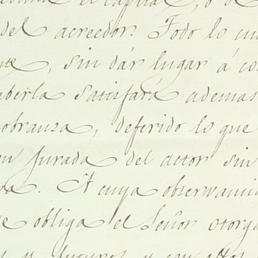 el capital, o
del acreedor. Todo lo cu
te, sin dár lugar á co
aberla satisfará ademas
obranza, deferido lo que
en Jurada del actor sin
da. A cuya observanci
e obliga el Señor otorg
y seguros y con altos